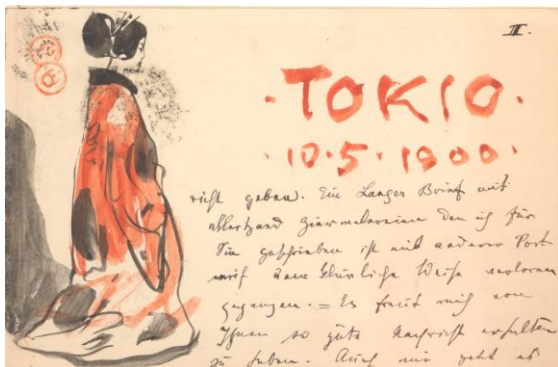 II.
·TOKIO·
·10·5·1900·
nicht geben. Ein Langer Brief mit
allerhand Ziermalereien den ich für
Sie geschrieben ist mit anderer Post
auf unerklärliche Weise verloren
gegangen. = Es freut mich von
Ihnen so gute Nachricht erhalten
zu haben. Auch mir geht es